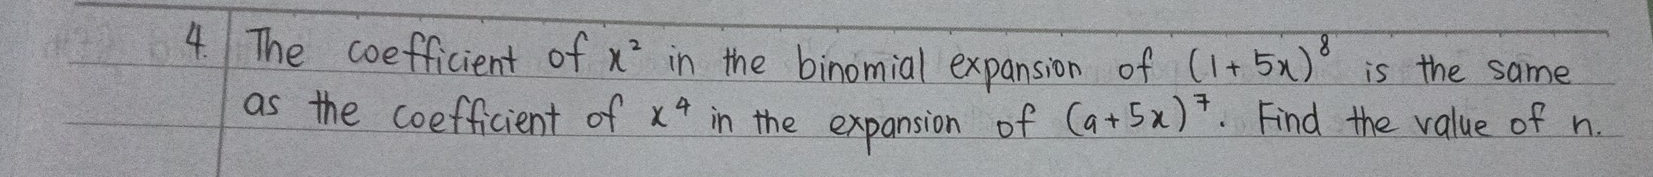 4. The coefficient of x² in the binomial expansion of (1+5x)⁸ is the same
as the coefficient of x⁴ in the expansion of (a+5x)⁷. Find the value of n.